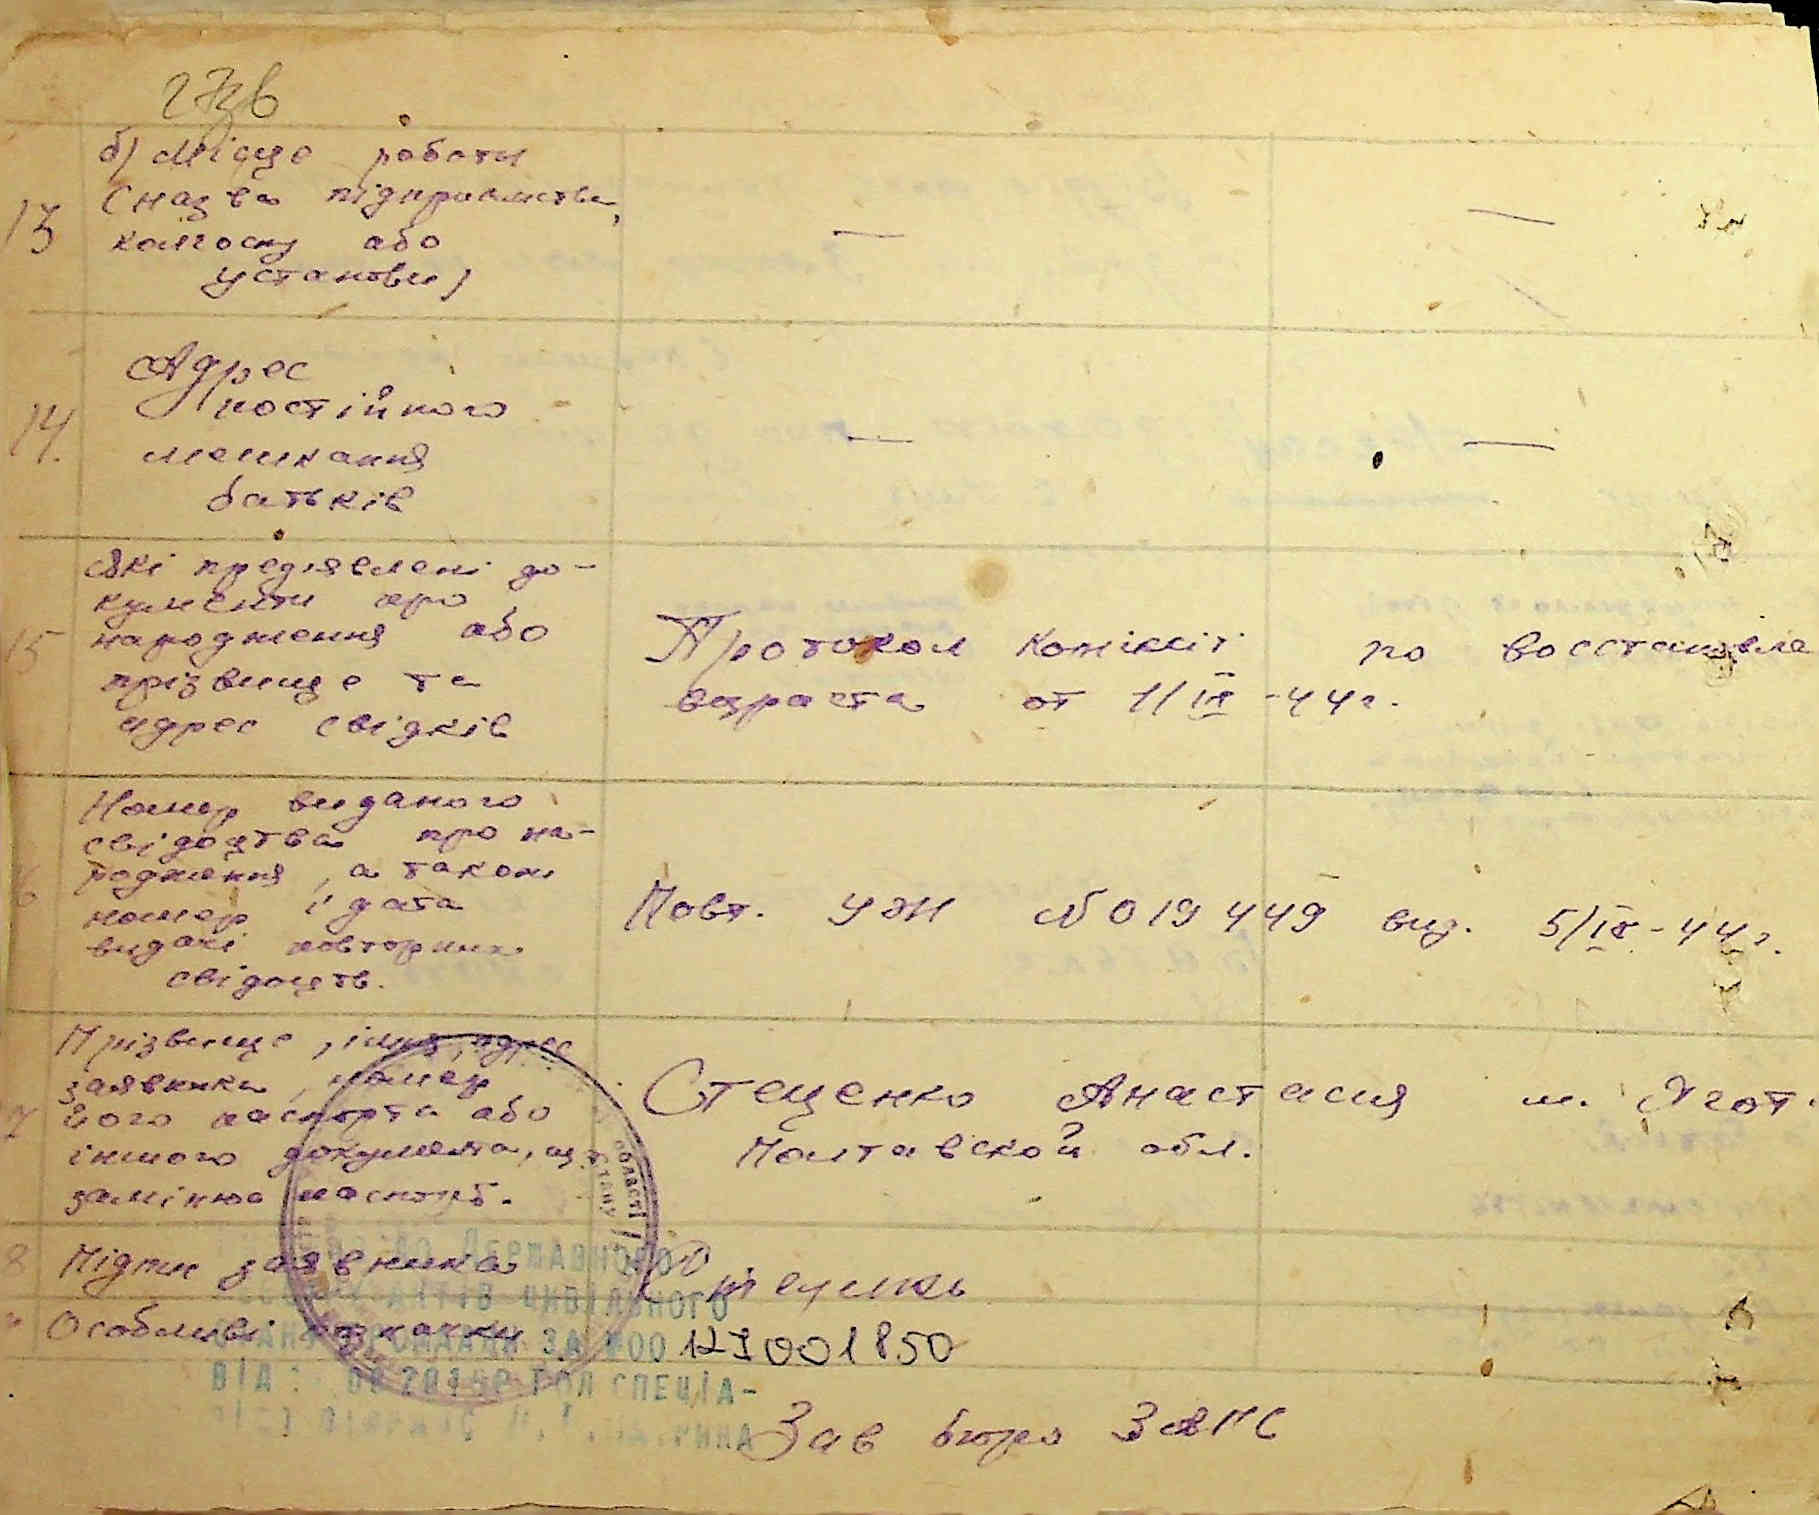 13
б) Місце роботи
(назва підприємства,
колгоспу або
установи)
—
—
14.
Адрес
постійного
мешкання
батьків
—
—
15
Які предявлені до-
кументи про
народження або
прізвище та
адрес свідків
Протокол комісіі по восстановле
возраста от 1/IX-44г.
6
Номер виданого
свідоцтва про на-
родження, а також
номер і дата
видачі повторних
свідоцтв.
Повт. УЖ № 019449 вид. 5/IX-44г.
7
Прізвище, імя, адрес
заявника, номер
його паспорта або
іншого документа, що
замінює паспорт.
Стеценко Анастасия м. Ягот.
Полтавской обл.
8
Підпис заявника
Особливі позначки
ДЕРЖАВНОГО
АКТІВ ЦИВІЛЬНОГО
ГРОМАДЯН ЗА №00 123001850
ВІД: СПЕЦІА-
ОБЛАСТІ
СТАНУ
Зав бюро ЗАГС